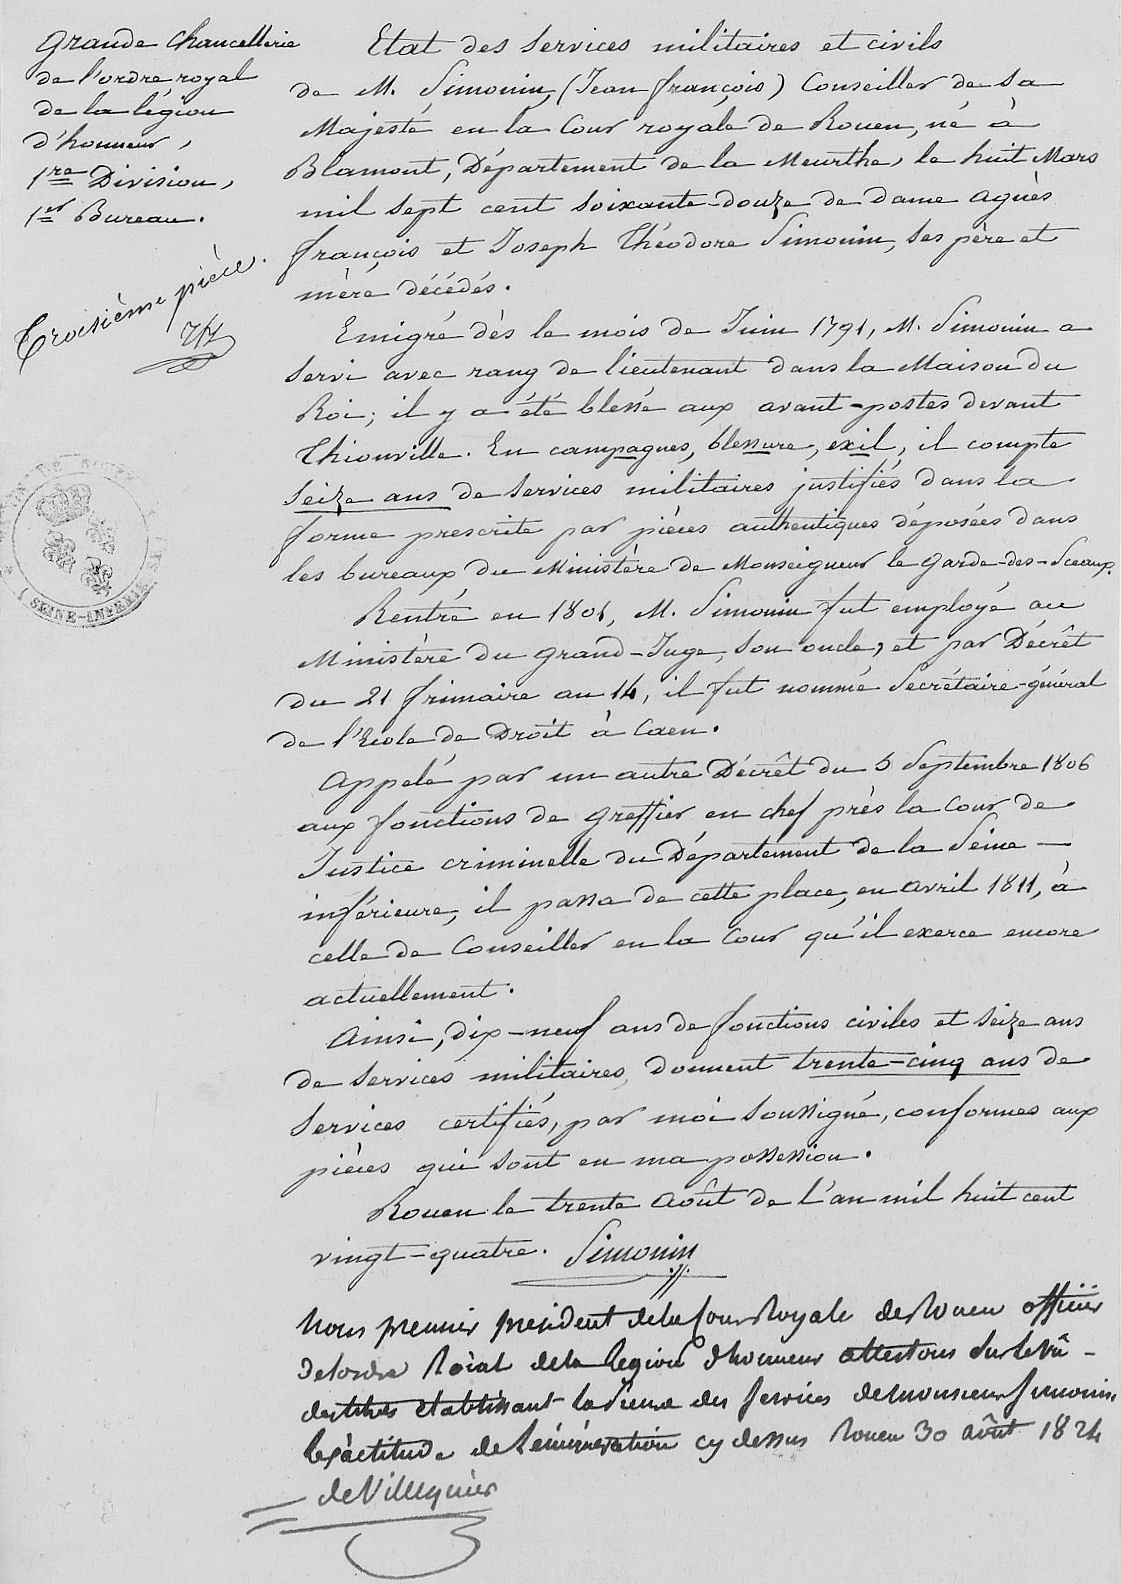 Grande Chancellerie
de l'ordre royal
de la légion
d'honneur,
1re Division,
1er Bureau.
Troisième pièce.
Etat des services militaires et civils
de M. Simonin, (Jean françois) Conseiller de Sa
Majesté en la Cour royale de Rouen, né à
Blamont, Département de la Meurthe, le huit Mars
mil sept cent soixante-douze de dame agnès
françois et Joseph Théodore Simonin, ses père et
mère décédés.
Emigré dès le mois de Juin 1791, M. Simonin a
servi avec rang de lieutenant dans la Maison du
Roi; il y a été blessé aux avant-postes devant
Thionville. En campagnes, blessure, exil, il compte
seize ans de services militaires justifiés dans la
forme prescrite par pièces authentiques déposées dans
les bureaux du Ministère de Monseigneur le Garde-des-Sceaux.
Rentré en 1801, M. Simonin fut employé au
Ministère du Grand-Juge, son oncle, et par Décrêt
du 21 frimaire an 14, il fut nommé Secrétaire-général
de l'Ecole de Droit à Caen.
Appelé par un autre Décrêt du 5 Septembre 1806
aux fonctions de greffier en chef près la Cour de
Justice criminelle du Département de la Seine-
inférieure, il passa de cette place, en avril 1811, à
celle de Conseiller en la Cour qu'il exerce encore
actuellement.
Ainsi, dix-neuf ans de fonctions civiles et seize ans
de services militaires, donnent trente-cinq ans de
services certifiés, par moi soussigné, conformes aux
pièces qui sont en ma possession.
Rouen le trente Août de l'an mil huit cent
vingt-quatre. Simonin
Nous premier president de la Cour Royale de Rouen officier
de lordre Roïal de la legion dhonneur attestons sur le vû
des titres etablissant la preuve des services de monsieur Simonin
lexactitude de lénumération cy dessus Rouen 30 août 1824
de Villequier
SEINE-INFERIE